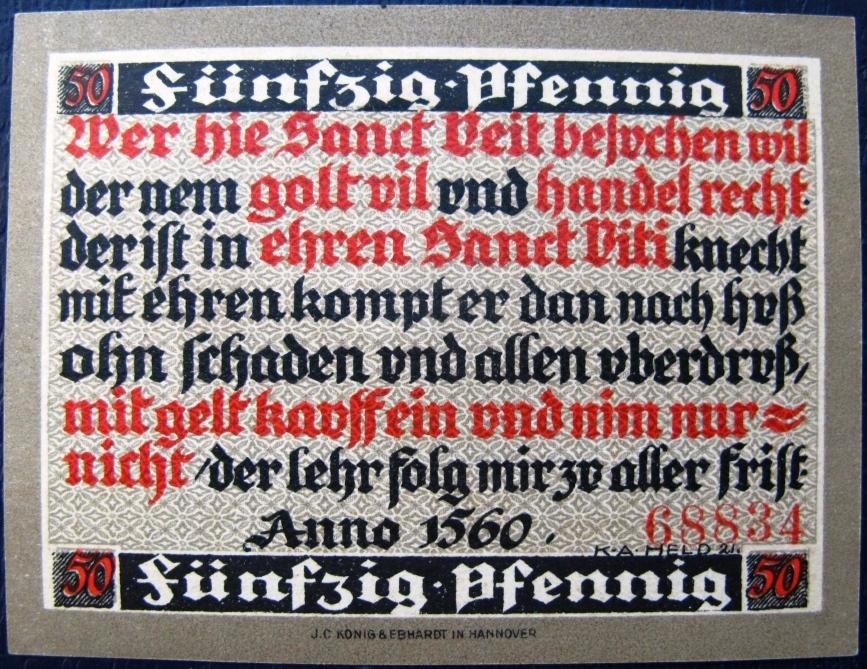 50 Fünfzig · Pfennig 50
Wer hie Sanct Veit besvchen wil
der nem golt vil vnd handel recht·
der ist in ehren Sanct Viti knecht
mit ehren kompt er dan nach hvß
ohn schaden vnd allen vberdrvß,
mit gelt kavff ein vnd nim nur=
nicht / der lehr folg mir zv aller frist·
Anno 1560 .
68834
K·A·HELD 21.
50 Fünfzig · Pfennig 50
J.C KÖNIG & EBHARDT IN HANNOVER